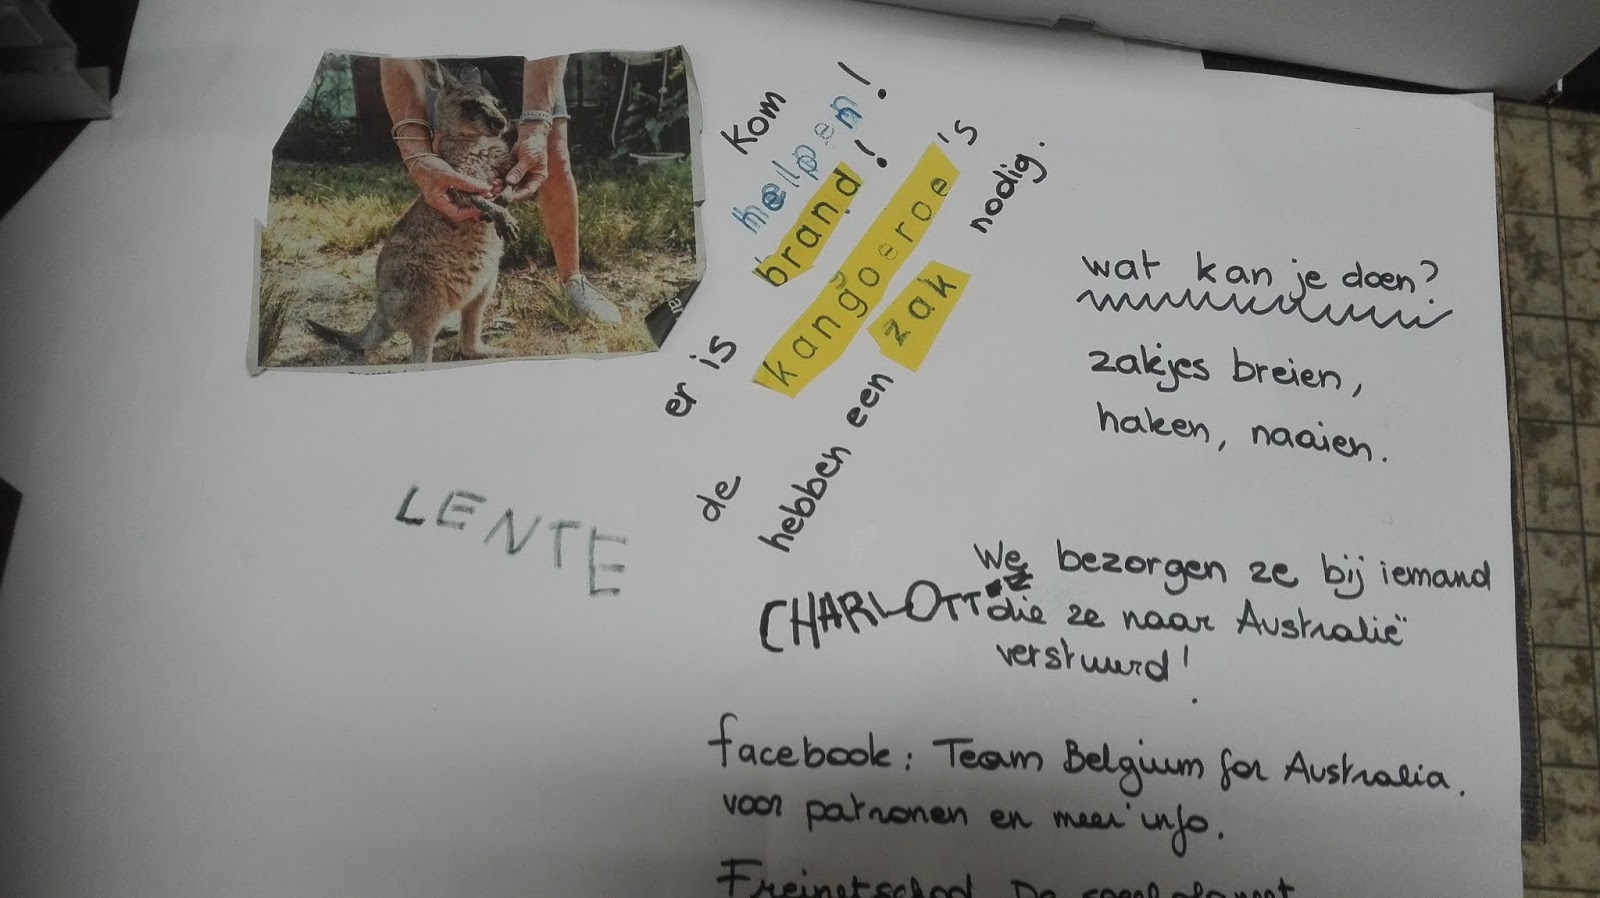 Kom
helpen!
er is brand!
de kangoeroe's
hebben een zak nodig.
wat kan je doen?
zakjes breien,
haken, naaien.
LENTE
CHARLOTTE
We bezorgen ze bij iemand
die ze naar Australië
verstuurd!
facebook: Team Belgium for Australia.
voor patronen en meer info.
Freinetschool De